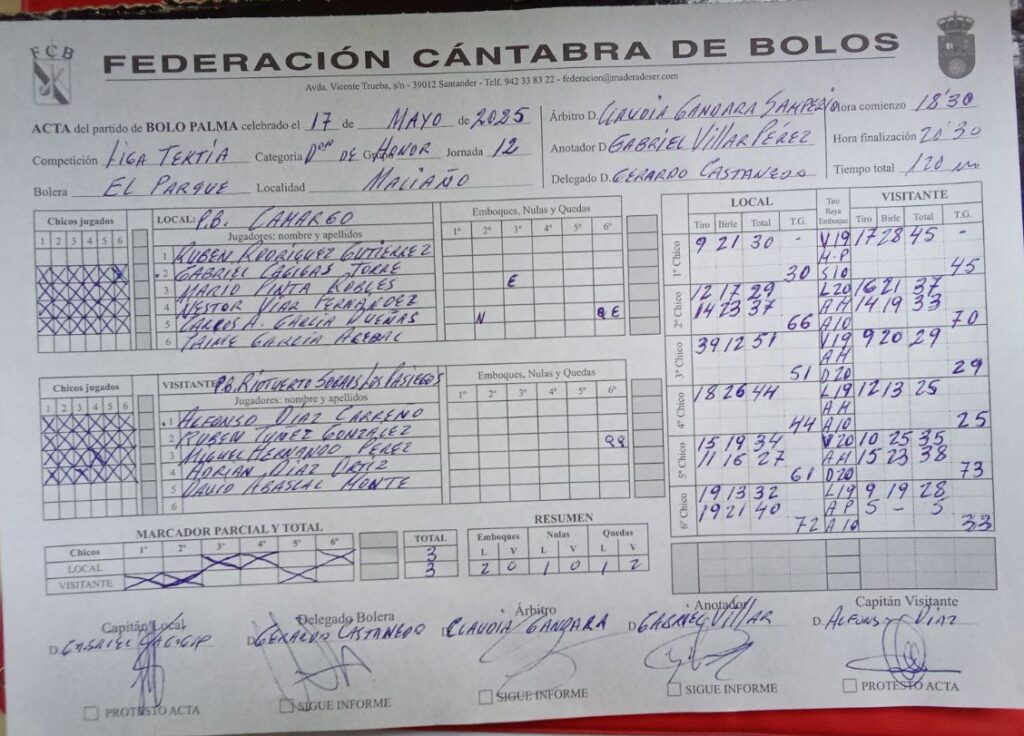 FCB
FEDERACIÓN CÁNTABRA DE BOLOS
Avda. Vicente Trueba, s/n - 39012 Santander - Telf. 942 33 83 22 - federacion@maderadeser.com
ACTA del partido de BOLO PALMA celebrado el 17 de MAYO de 2025
Competición LIGA TEXTIA Categoría DE HONOR Jornada 12
Bolera EL PARQUE Localidad MALIAÑO
Árbitro D. CLAUDIA GANDARA SAMPERIO
Anotador D GABRIEL VILLAR PEREZ
Delegado D. GERARDO CASTANEDO
Hora comienzo 18'30
Hora finalización 20'30
Tiempo total 120
Chicos jugados
1 2 3 4 5 6
LOCAL: P.B. CAMARGO
Jugadores: nombre y apellidos
Emboques, Nulas y Quedas
1º 2º 3º 4º 5º 6º
1 RUBEN RODRIGUEZ GUTIERREZ
2 GABRIEL CAGIGAS TORRE
3 MARIO PINTA ROBLES E
4 NESTOR VIAR FERNANDEZ
5 CARLOS A. GARCIA DUEÑAS N Q E
6 JAIME GARCIA
Chicos jugados
1 2 3 4 5 6
VISITANTE P.B. RIOTUERTO SOBAOS LOS PASIEGOS
Jugadores: nombre y apellidos
Emboques, Nulas y Quedas
1º 2º 3º 4º 5º 6º
1 ALFONSO DIAZ CARRENO
2 RUBEN TUÑEZ GONZALEZ
3 MIGUEL HERNANDO PEREZ QQ
4 ADRIAN DIAZ ORTIZ
5 DAVID ABASCAL MONTE
6
LOCAL VISITANTE
Tiro Birle Total T.G. Tiro Raya Emboque Tiro Birle Total T.G.
1º Chico
9 21 30 - V19 17 28 45 -
M-P
30 S10 45
2º Chico
12 17 29 L20 16 21 37
14 23 37 AH 14 19 33
66 A10 70
3º Chico
39 12 51 V19 9 20 29
AH
51 D20 29
4º Chico
18 26 44 L19 12 13 25
AH
44 A10 25
5º Chico
15 19 34 V20 10 25 35
11 16 27 AH 15 23 38
61 D20 73
6º Chico
19 13 32 L19 9 19 28
19 21 40 AP 5 - 5
72 A10 33
MARCADOR PARCIAL Y TOTAL
Chicos 1º 2º 3º 4º 5º 6º TOTAL
LOCAL 3
VISITANTE 3
RESUMEN
Emboques Nulas Quedas
L V L V L V
2 0 1 0 1 2
Capitán Local
D. GABRIEL
Delegado Bolera
D GERARDO CASTANEDO
Árbitro
D. CLAUDIA GANDARA
Anotador
D. GABRIEL VILLAR
Capitán Visitante
D. ALFONSO DIAZ
PROTESTO ACTA
SIGUE INFORME
SIGUE INFORME
SIGUE INFORME
PROTESTO ACTA